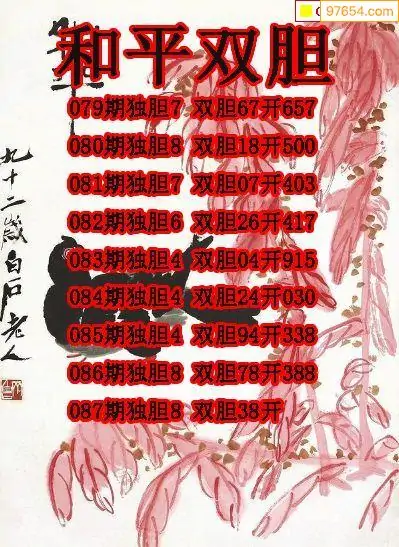 97654.com
和平双胆
079期独胆7 双胆67开657
080期独胆8 双胆18开500
081期独胆7 双胆07开403
082期独胆6 双胆26开417
083期独胆4 双胆04开915
084期独胆4 双胆24开030
085期独胆4 双胆94开338
086期独胆8 双胆78开388
087期独胆8 双胆38开
九十二岁白石老人